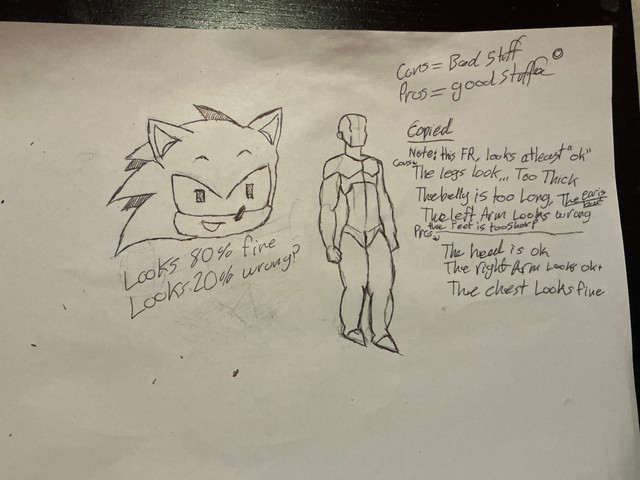 Cons = Bad Stuff
Pros = good Stuff
Copied
Note: this FR, looks atleast "ok"
Cons
The legs look... Too Thick
The belly is too Long, The
The left Arm Looks wrong
the Feet is too sharp
Pros
The head is ok
The right Arm Looks ok
The chest Looks fine
Looks 80% fine
Looks 20% wrong?